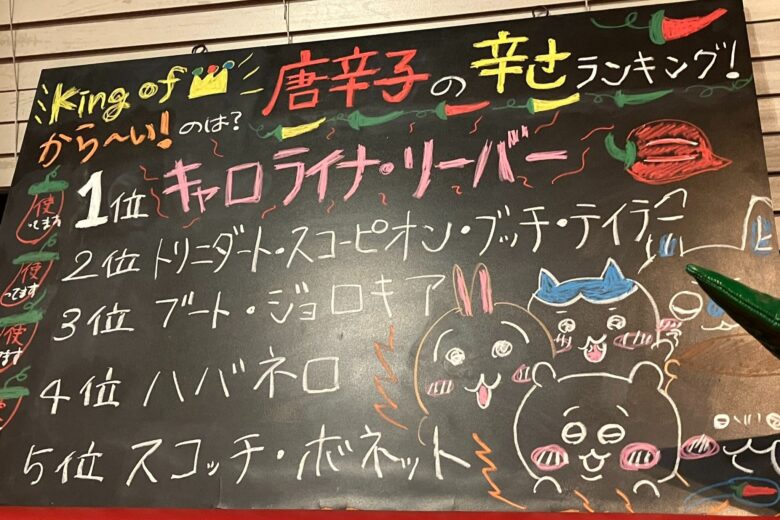 King of 唐辛子の辛さランキング!
から〜い!のは?
1位 キャロライナ・リーパー
使ってます 2位 トリニダート・スコーピオン・ブッチ・テイラー
使ってます 3位 ブート・ジョロキア
使ってます 4位 ハバネロ
5位 スコッチ・ボネット